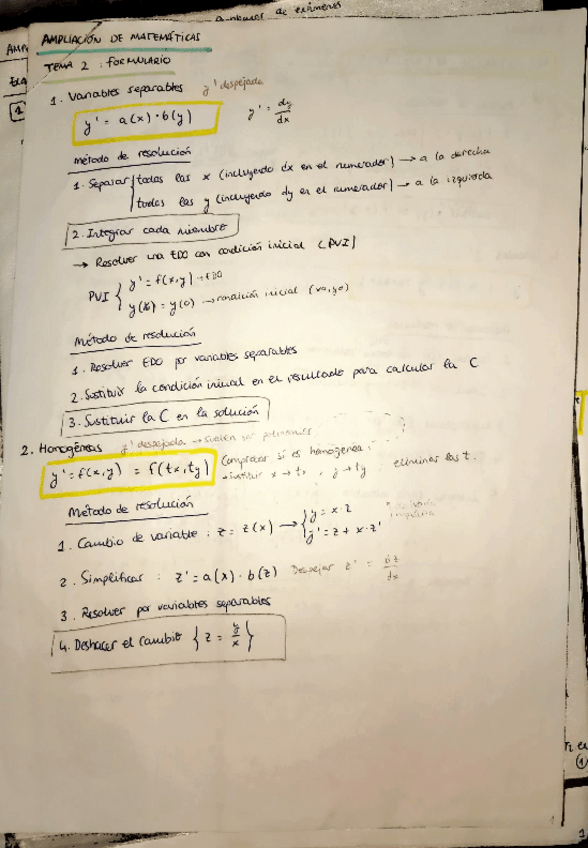 AMPLIACIÓN DE MATEMÁTICAS
TEMA 2 : FORMULARIO
1. Variables separables y' despejada
y' = a(x) · b(y) y' = dy/dx
Método de resolución
1. Separar { todas las x (incluyendo dx en el numerador) → a la derecha
todas las y (incluyendo dy en el numerador) → a la izquierda
2. Integrar cada miembro
→ Resolver una EDO con condición inicial (PVI)
PVI { y' = f(x,y) → EDO
y(x) = y(0) → condición inicial (x0,y0)
Método de resolución
1. Resolver EDO por variables separables
2. Sustituir la condición inicial en el resultado para calcular la C
3. Sustituir la C en la solución
2. Homogéneas y' despejada → suelen ser polinomios
y' = f(x,y) = f(tx,ty) Comprobar si es homogénea:
→ sustituir x → tx, y → ty eliminar las t.
Método de resolución
1. Cambio de variable : z = z(x) → { y = x·z
y' = z + x·z'
2. Simplificar : z' = a(x) · b(z) Despejar z' = dz/dx
3. Resolver por variables separables
4. Deshacer el cambio { z = y/x }